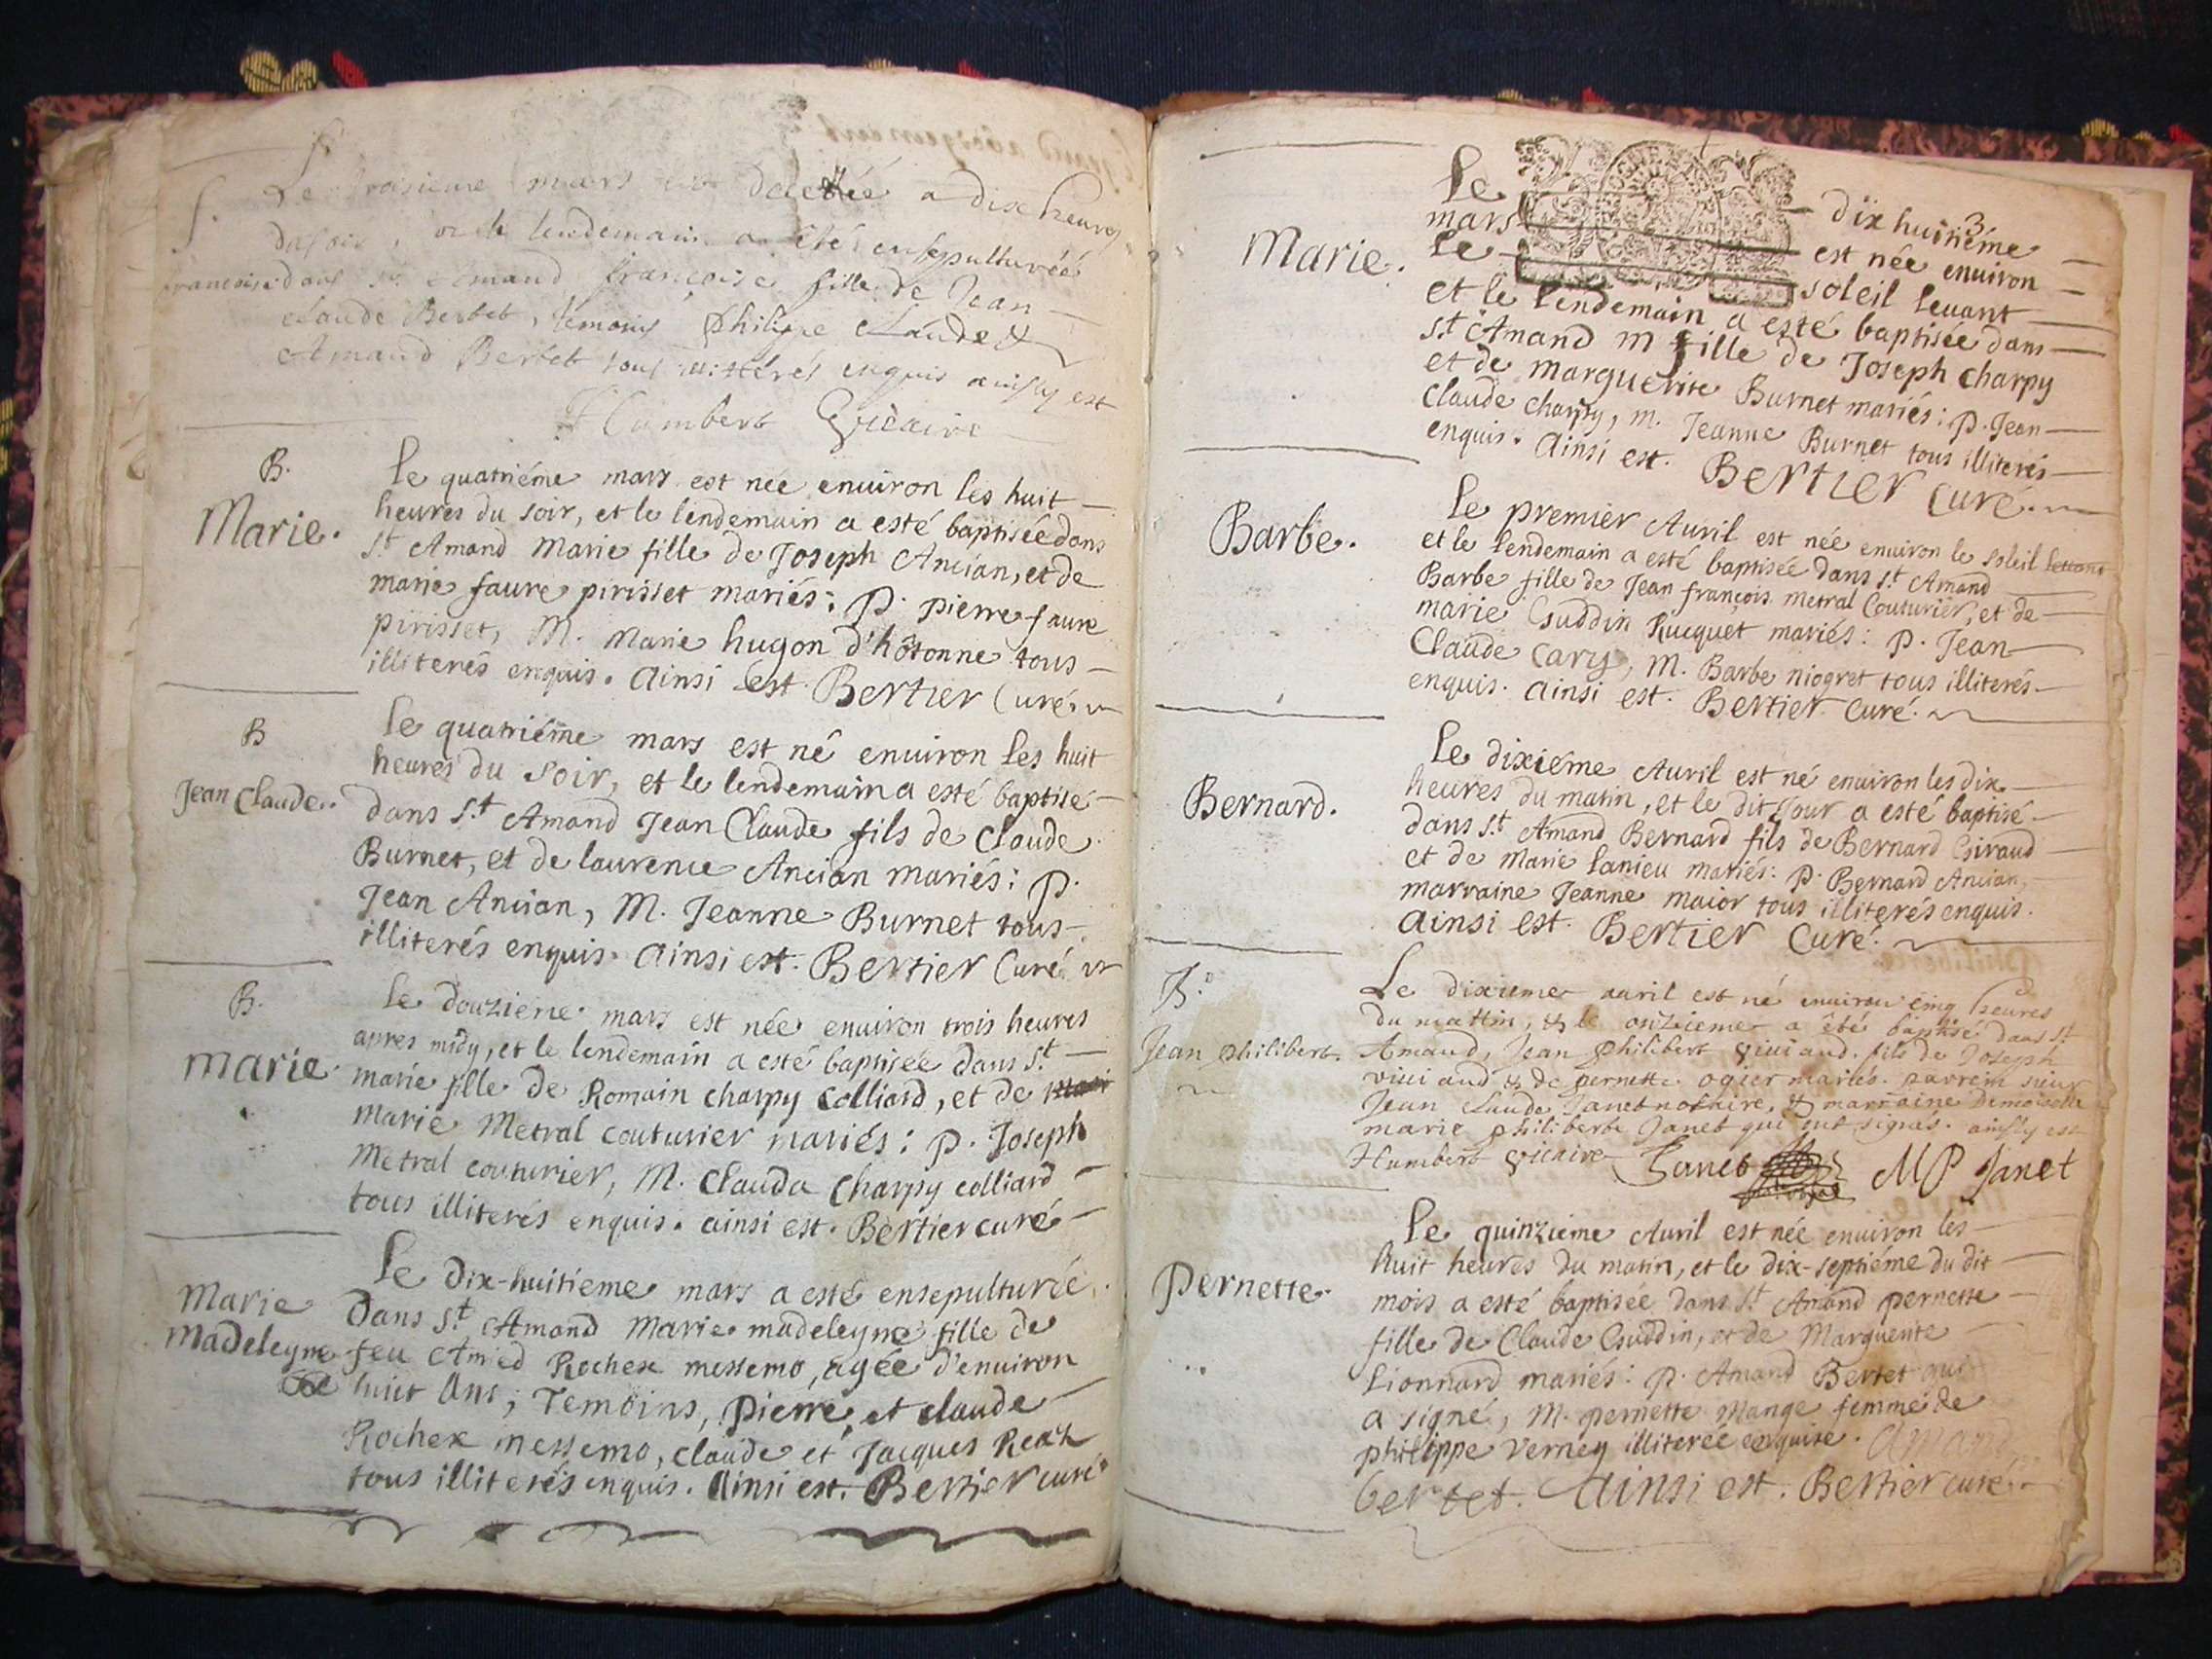 S.
Le troisieme mars est decedée a dix heures
du soir, et le lendemain a êté ensepulturéé
francoise dans St. Amand françoise fille de Jean
claude Bertet, témoins philippe claude &
Amand Bertet tous illitérés enquis ainsy est
Humbert vicaire
B.
Marie.
le quatriéme mars est née enuiron les huit
heures du soir, et le lendemain a esté baptisée dans
St Amand Marie fille de Joseph Ancian, et de
marie faure pirisset mariés: P. pierre faure
pirisset, M. Marie hugon d'hôtonne tous
illiterés enquis. Ainsi est. Bertier Curé
B
Jean Claude.
le quatriéme mars est né enuiron les huit
heures du soir, et le lendemain a esté baptisé
dans St Amand Jean Claude fils de Claude
Burnet, et de laurence Ancian mariés: P.
Jean Ancian, M. Jeanne Burnet tous
illiterés enquis. Ainsi est. Bertier Curé
B.
marie
le douzieme mars est née enuiron trois heures
apres midy, et le lendemain a esté baptisée dans St
marie fille de Romain charpy Colliard, et de mari
marie Metral couturier mariés: P. Joseph
Metral couturier, M. Clauda Charpy colliard
tous illiterés enquis. ainsi est. Bertier curé
Marie
Madeleyne
le dix-huitieme mars a esté ensepulturée
Dans St Amand Marie madeleyne fille de
feu Amied Rochex messemo, agée d'enuiron
huit Ans; Temoins, pierre et claude
Rochex messemo, claude et Jacques
tous illiterés enquis. Ainsi est. Bertier curé
Marie.
le dix huitiéme
mars est née enuiron
le soleil leuant
et le lendemain a esté baptisée dans
St Amand m fille de Joseph Charpy
et de marguerite Burnet mariés: P. Jean
Claude charpy, m. Jeanne Burnet tous illiterés
enquis. Ainsi est. Bertier Curé.
Barbe.
le premier Auril est née enuiron le soleil leuant
et le lendemain a esté baptisée dans St Amand
Barbe fille de Jean françois metral Couturier, et de
marie Guddin Rucquet mariés: P. Jean
Claude Cary, M. Barbe niogret tous illiterés
enquis. Ainsi est. Bertier curé.
Bernard.
le dixiéme Auril est né enuiron les dix
heures du matin, et le dit jour a esté baptisé
dans St Amand Bernard fils de Bernard Giraud
et de Marie lanieu mariés: P. Bernard Ancian,
marraine Jeanne maior tous illiterés enquis.
Ainsi est. Bertier Curé.
B.
Jean philibert.
Le dixieme auril est né enuiron cinq heures
du mattin, & le onzieme a êté baptisé dans St
Amand, Jean philibert viuiand. fils de Joseph
viuiand & de pernette ogier mariés. parrein sieur
Jean claude Janet notaire, & marraine Demoiselle
marie philiberte Janet qui ont signés. ainsy est
Humbert vicaire Janet MP Janet
Pernette.
le quinziéme Auril est née enuiron les
huit heures du matin, et le dix-septiéme du dit
mois a esté baptisée dans St Amand pernette
fille de Claude Guddin, et de Marguerite
Lionnard mariés: P. Amand Bertet qui
a signé, M. pernette Mange femme de
philippe Verney illiterée enquise. Amand
bertet. Ainsi est. Bertier curé.